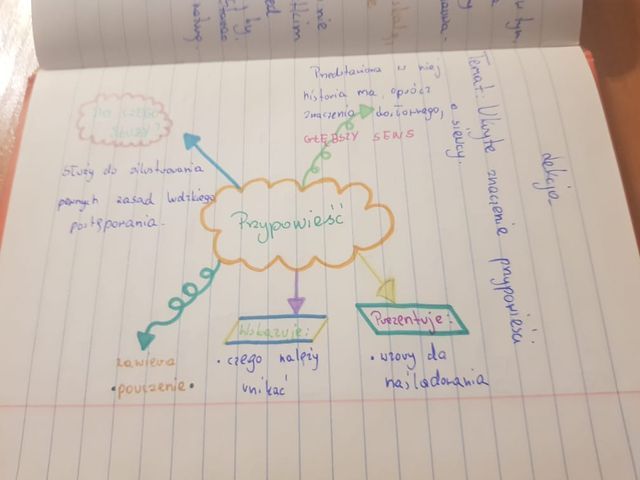 Lekcja
Temat: Ukryte znaczenie przypowieści
o siewcy.
Przedstawiona w niej
historia ma, oprócz
znaczenia dosłownego,
GŁĘBSZY SENS
Do czego
służy?
Służy do zilustrowania
pewnych zasad ludzkiego
postępowania.
Przypowieść
zawiera
•pouczenie•
Wskazuje:
• czego należy
unikać
Prezentuje:
• wzory do
naśladowania